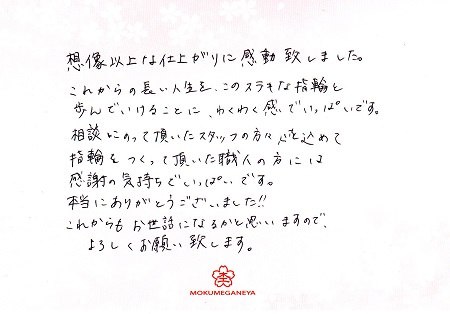 想像以上な仕上がりに感動致しました。
これからの長い人生を、このステキな指輪と
歩んでいけることに、わくわく感でいっぱいです。
相談にのって頂いたスタッフの方々、心を込めて
指輪をつくって頂いた職人の方には
感謝の気持ちでいっぱいです。
本当にありがとうございました!!
これからもお世話になるかと思いますので、
よろしくお願い致します。
MOKUMEGANEYA